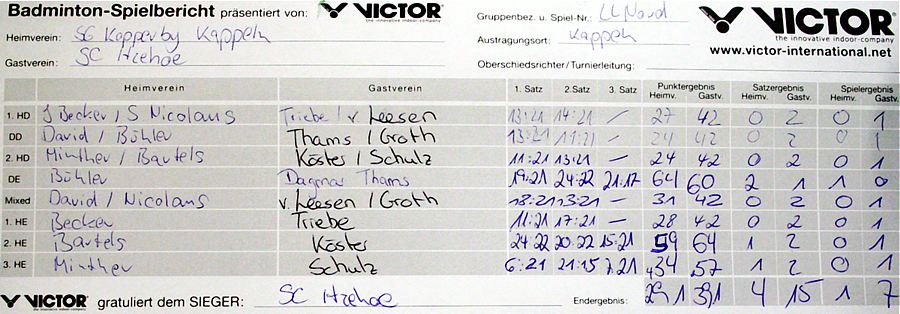 Badminton-Spielbericht präsentiert von: VICTOR the innovative indoor-company Gruppenbez. u. Spiel-Nr.: LL Nord VICTOR
the innovative indoor-company
Heimverein: SG Kopperby Kappeln Austragungsort: Kappeln www.victor-international.net
Gastverein: SC Itzehoe Oberschiedsrichter/Turnierleitung:
Heimverein Gastverein 1. Satz 2. Satz 3. Satz Punktergebnis Satzergebnis Spielergebnis
Heimv. Gastv. Heimv. Gastv. Heimv. Gastv.
1. HD J Becker / S Nicolaus Triebe / v Leesen 13:21 14:21 — 27 42 0 2 0 1
DD David / Bühler Thams / Groth 24 42 0 2 0 1
2. HD Minther / Bartels Köster / Schulz 11:21 13:21 — 24 42 0 2 0 1
DE Bühler Dagmar Thams 19:21 24:22 21:17 64 60 2 1 1 0
Mixed David / Nicolaus v. Leesen / Groth 18:21 13:21 — 31 42 0 2 0 1
1. HE Becker Triebe 11:21 17:21 — 28 42 0 2 0 1
2. HE Bartels Köster 24:22 20:22 15:21 59 64 1 2 0 1
3. HE Minther Schulz 6:21 21:15 7:21 34 57 1 2 0 1
VICTOR gratuliert dem SIEGER: SC Itzehoe Endergebnis: 291 391 4 15 1 7
the innovative indoor-company